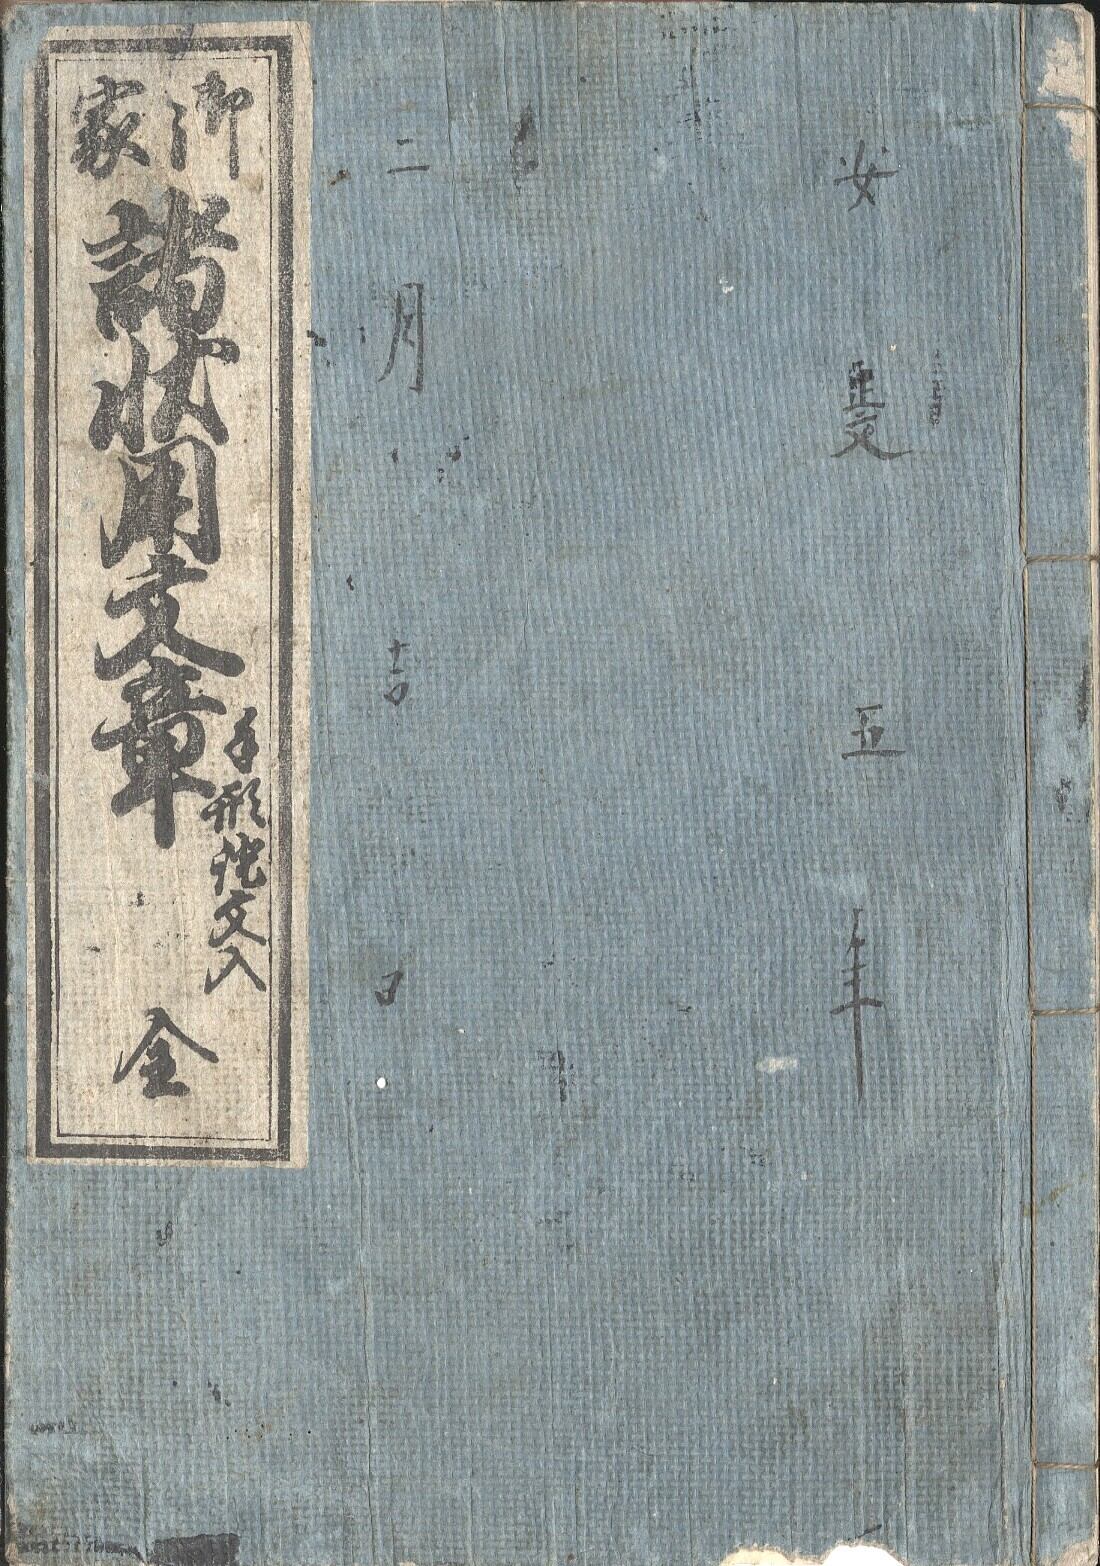 安政五年
二月吉日
御家
諸状用文章
手形證文入
全